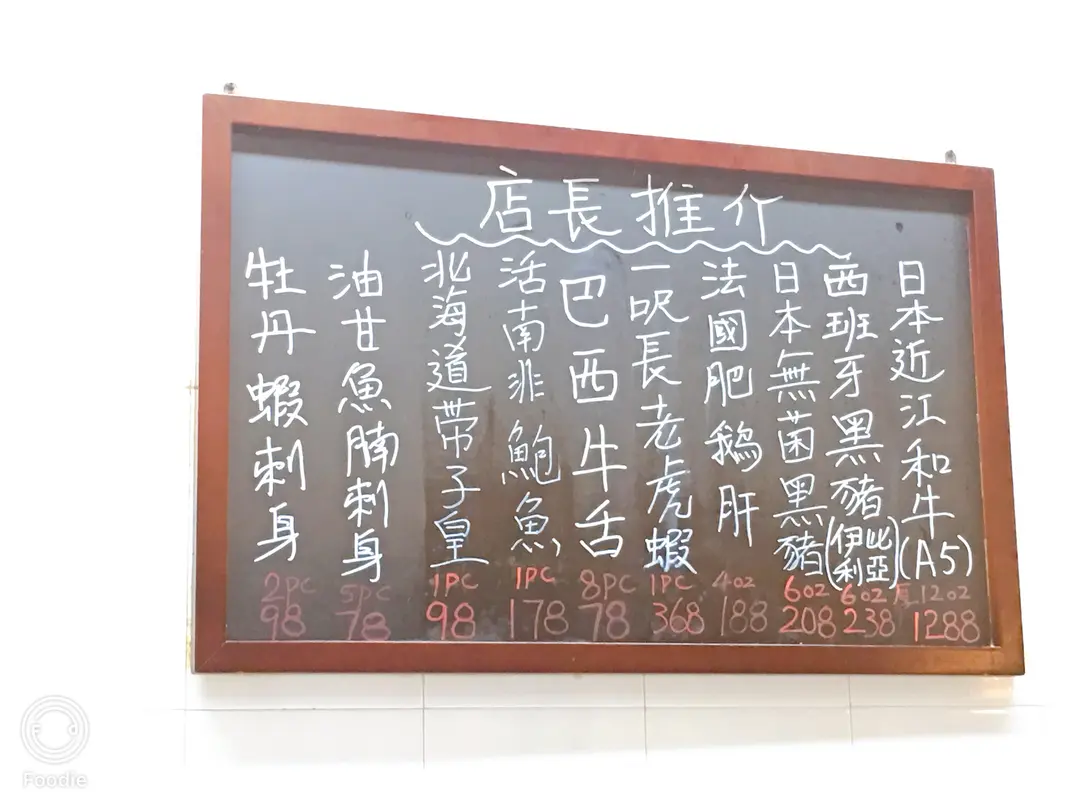 店長推介
日本近江和牛(A5)
厚12oz
1288
西班牙黑豬(伊比利亞)
6oz
238
日本無菌黑豬
6oz
208
法國肥鵝肝
4oz
188
一呎長老虎蝦
1PC
368
巴西牛舌
8PC
78
活南非鮑魚
1PC
178
北海道帶子皇
1PC
98
油甘魚腩刺身
5PC
78
牡丹蝦刺身
2PC
98
Foodie